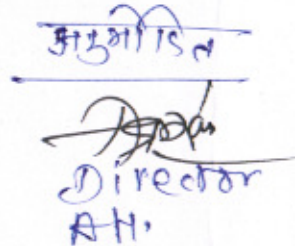 अनुमोदित
Director
AH.